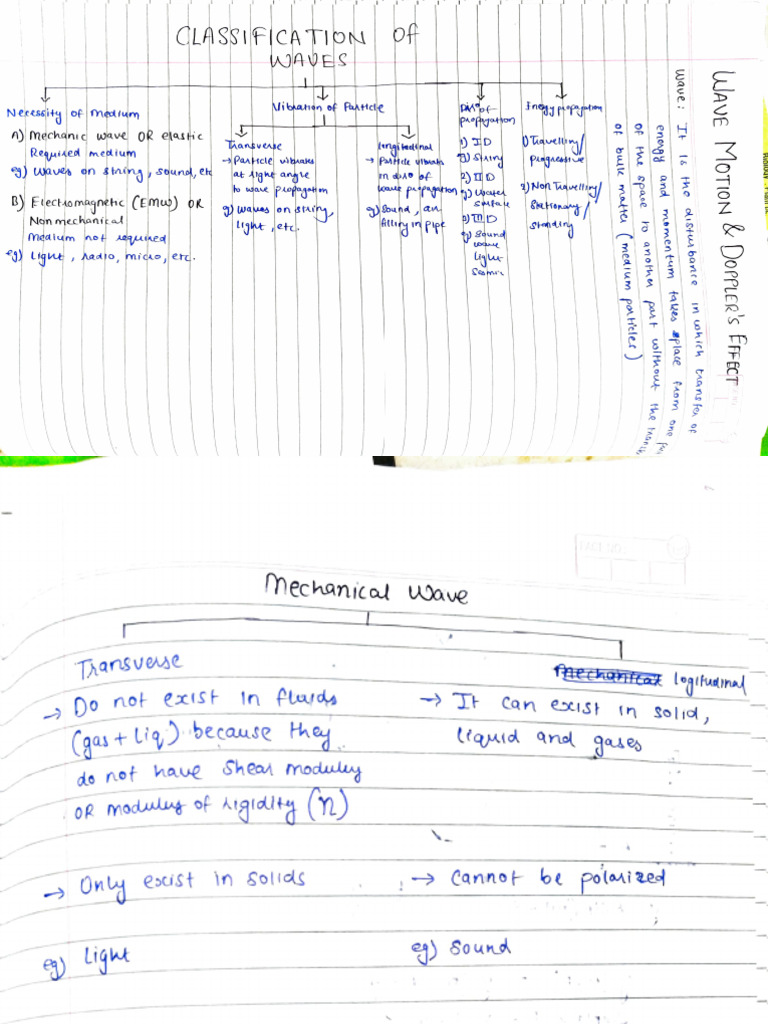 WAVE MOTION & DOPPLER'S EFFECT
Wave: It is the disturbance in which transfer of
energy and momentum takes place from one
of the space to another part without the
of bulk matter (medium particles)
CLASSIFICATION OF
WAVES
Necessity of Medium
A) Mechanic wave OR elastic
Required medium
eg) Waves on string, sound, etc
B) Electromagnetic (EMW) OR
Nonmechanical
Medium not required
eg) Light, radio, micro, etc.
Vibration of Particle
Transverse
→ Particle vibrates
at right angle
to wave propagation
eg) Waves on string,
light, etc.
longitudinal
→ Particle vibrate
in dirn of
wave propagation
eg) Sound, air
filling in pipe
Dirn of
propagation
1) I D
eg) String
2) II D
eg) Water
surface
3) III D
eg) Sound
wave
light
Energy propagation
1) Travelling/
progressive
2) Non Travelling/
Stationary/
standing
Mechanical Wave
Transverse
→ Do not exist in fluids
(gas + liq) because they
do not have shear modulus
OR modulus of rigidity (η)
→ Only exist in solids
eg) light
Mechanical logitudinal
→ It can exist in solid,
liquid and gases
→ Cannot be polarized
eg) Sound